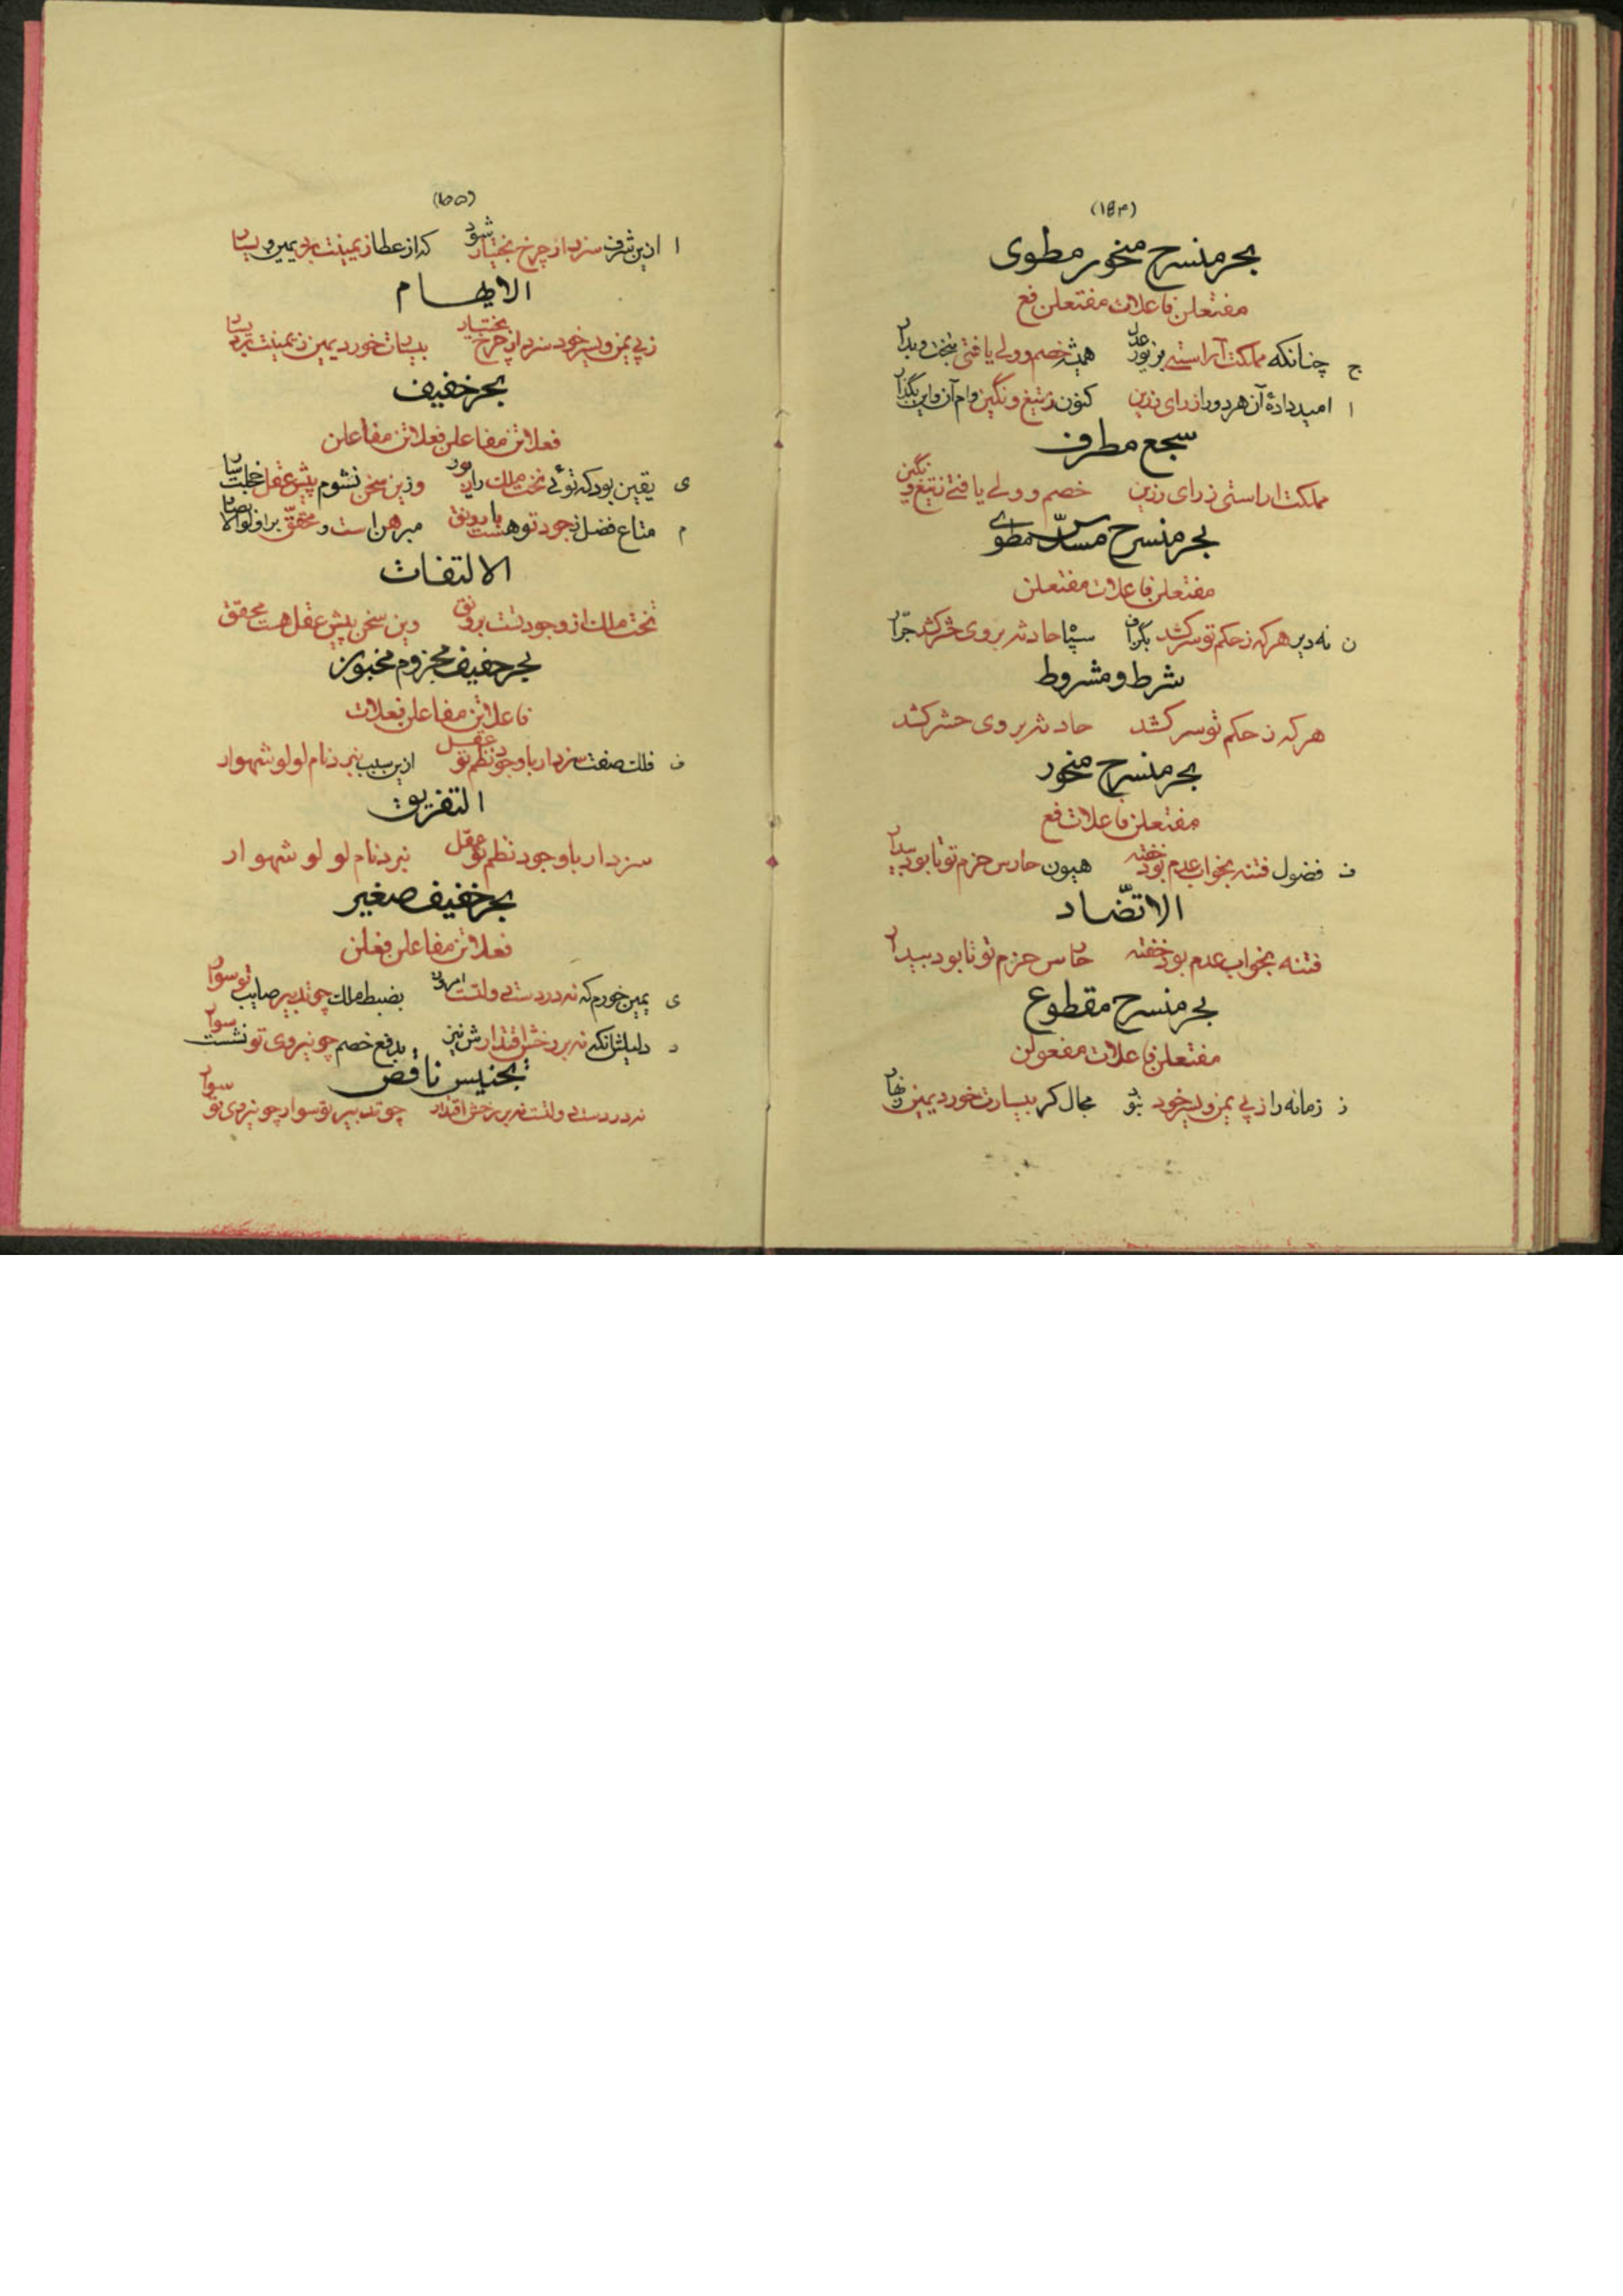 (۱۵۴)
بحر منسرح منحور مطوی
مفتعلن فاعلات مفتعلن فع
ج چنانکه مملکت آراستی بزیور عدل همیشه خصم و ولی یافتی بتخت و بدار
ا امید دادهٔ آن هر دو را ز رای رزین کنون ز تیغ و نگین وام آن و این بگذار
سجع مطرف
مملکت اراستی ز رای رزین خصم و ولی یافتی ز تیغ و نگین
بحر منسرح مسدّس مطوی
مفتعلن فاعلات مفتعلن
ن نه دیر هر که ز حکم تو سرکشد بگزاف سپاه حادثه بر وی حشر کشد جرّار
شرط و مشروط
هر که ز حکم تو سر کشد حادثه بر وی حشر کشد
بحر منسرح منحور
مفتعلن فاعلات فع
ف فضول فتنه بخواب عدم بود خفته همیون حارس حزم تو تا بود بیدار
الاتضّاد
فتنه بخواب عدم بود خفته حارس حزم تو تا بود بیدار
بحر منسرح مقطوع
مفتعلن فاعلات مفعولن
ز زمانه را ز پی یمن و یسر خود نبود مجال کر بیسارت خورد یمین زنهار
(۱۵۵)
ا ازین شرف سزد از چرخ بختیار شود که از عطا ز یمینت برد یمین و یسار
الایهام
ز پی یمن و یسر خود سزد از چرخ بختیار بیسارت خورد یمین ز یمینت برد یسار
بحر خفیف
فعلاتن مفاعلن فعلاتن مفاعلن
ی یقین بود که توئی تخت ملک را در خور وزین سخن نشوم پیش عقل خجلت سار
م متاع فضل ز جود تو هست با رونق مبرهن است و محقّق بر اولو الابصار
الالتفات
تخت ملک از وجود تست برونق وین سخن پیش عقل هست محقّق
بحر خفیف مجزوم مخبون
فاعلاتن مفاعلن فعلات
ف فلک صفت سزد ار با وجود نظم تو عقل ازین سبب نبرد نام لولو شهوار
التفریق
سزد ار با وجود نظم تو عقل نبرد نام لو لو شهوار
بحر خفیف صغیر
فعلاتن مفاعلن فعلن
ی یمین خورم که نه در دست دولتت امروز بضبط ملک چو تدبیر صایب تو سوار
د دلیلش آنکه نه بر رخش اقتدارش نیز بدفع خصم چو نیروی تو نشست سوار
تجنیس ناقص
نه در دست دولتت نه بر رخش اقتدار چو تدبیر تو سوار چو نیروی تو سوار